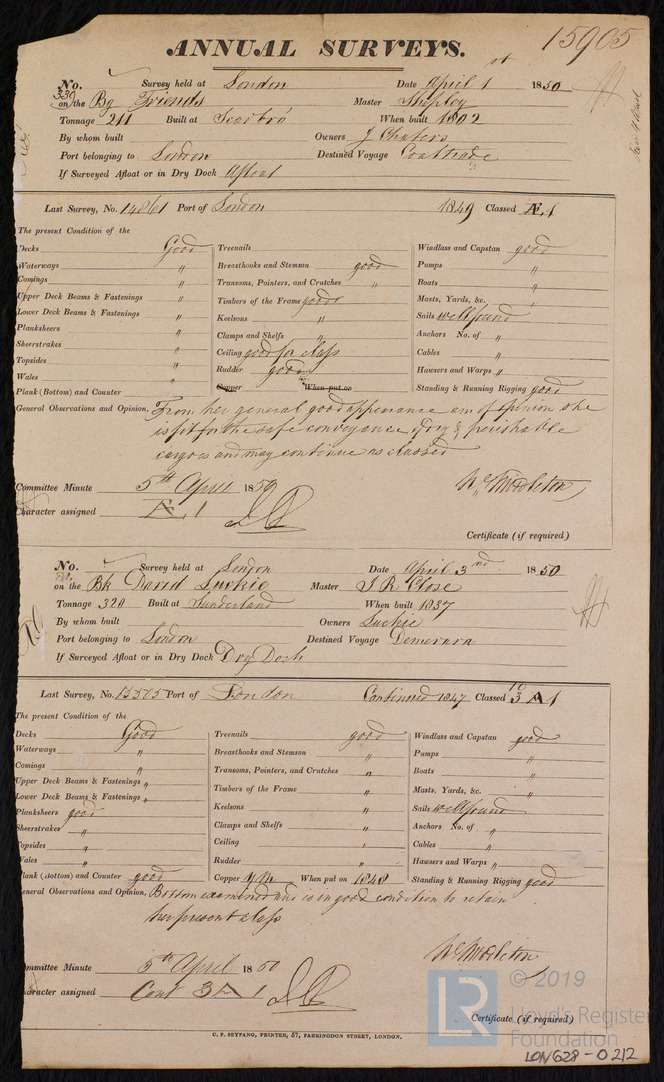 15905
ANNUAL SURVEYS.
No. 330 Survey held at London Date April 1 1850
on the Bg Friends Master Shipley
Tonnage 211 Built at Scarbro' When built 1802
By whom built Owners J Chaters
Port belonging to London Destined Voyage Coaltrade
If Surveyed Afloat or in Dry Dock Afloat
Last Survey, No. 14861 Port of London 1849 Classed Æ 1
The present Condition of the
Decks Good
Waterways "
Comings "
Upper Deck Beams & Fastenings "
Lower Deck Beams & Fastenings "
Planksheers "
Sheerstrakes "
Topsides "
Wales "
Plank (Bottom) and Counter "
Treenails
Breasthooks and Stemson good
Transoms, Pointers, and Crutches "
Timbers of the Frame good
Keelsons "
Clamps and Shelfs "
Ceiling good for class
Rudder good
Copper When put on
Windlass and Capstan good
Pumps "
Boats "
Masts, Yards, &c. "
Sails well found
Anchors No. of "
Cables "
Hawsers and Warps "
Standing & Running Rigging good
General Observations and Opinion, From her general good appearance am of opinion she
is fit for the safe conveyance of dry & perishable
cargoes and may continue as classed
Committee Minute 5th April 1850 Wm Middleton
Character assigned Æ 1
Certificate (if required)
No. Survey held at London Date April 3rd 1850
on the Bk David Luckie Master J R Close
Tonnage 320 Built at Sunderland When built 1837
By whom built Owners Luckie
Port belonging to London Destined Voyage Demerara
If Surveyed Afloat or in Dry Dock Dry Dock
Last Survey, No. 13505 Port of London Continued 1847 Classed 10 3 A 1
The present Condition of the
Decks Good
Waterways "
Comings "
Upper Deck Beams & Fastenings "
Lower Deck Beams & Fastenings "
Planksheers good
Sheerstrakes "
Topsides "
Wales "
Plank (Bottom) and Counter good
Treenails good
Breasthooks and Stemson "
Transoms, Pointers, and Crutches "
Timbers of the Frame "
Keelsons "
Clamps and Shelfs "
Ceiling "
Rudder "
Copper YM When put on 1848
Windlass and Capstan good
Pumps "
Boats "
Masts, Yards, &c. "
Sails well found
Anchors No. of "
Cables "
Hawsers and Warps "
Standing & Running Rigging good
General Observations and Opinion, Bottom examined and is in good condition to retain
her present class
Wm Middleton
Committee Minute 5th April 1850
Character assigned Cont 3 A 1
Certificate (if required)
C. F. SEYFANG, PRINTER, 57, FARRINGDON STREET, LONDON.
LR © 2019
Lloyd's Register
Foundation
LON628-0212